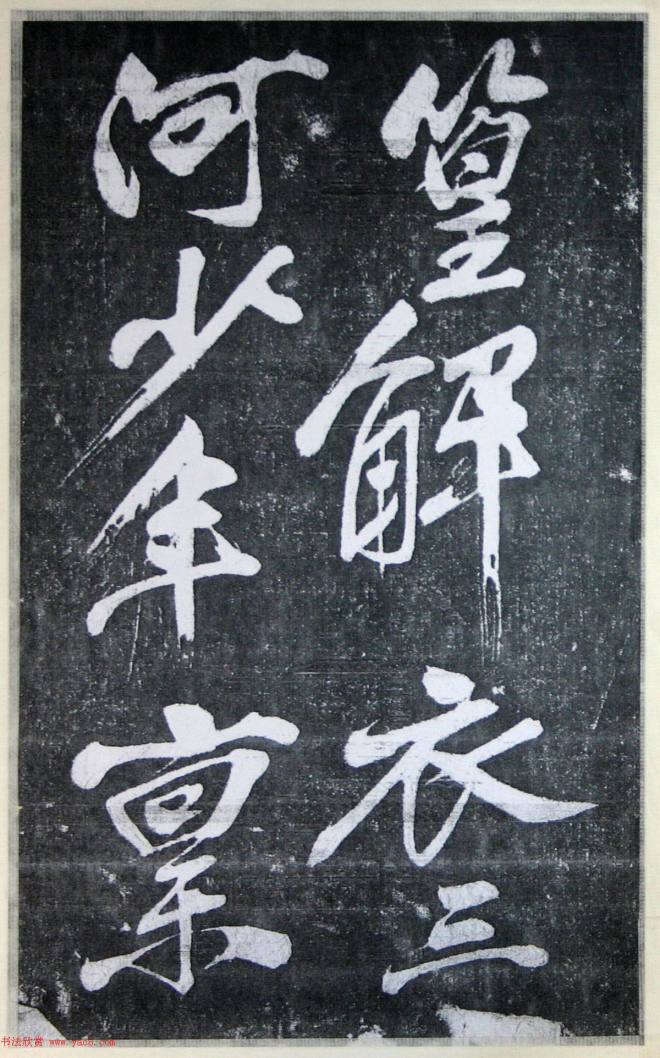 篁解衣三
何少年稟
书法欣赏 www.yac8.com